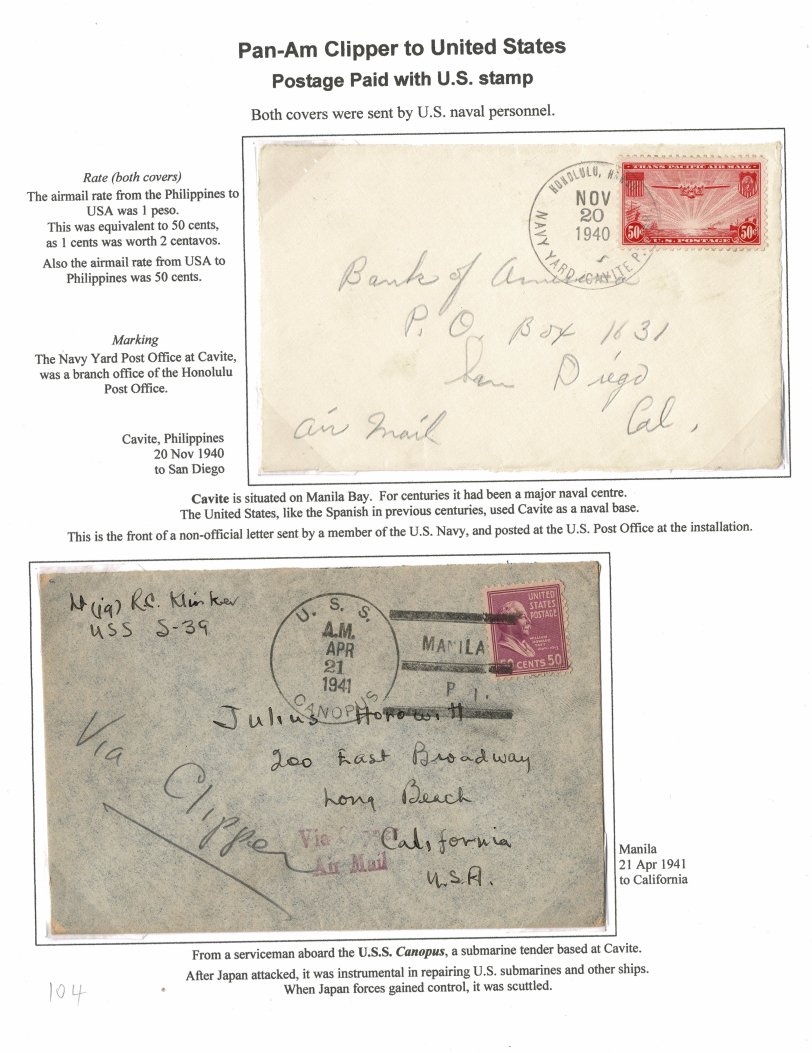 Pan-Am Clipper to United States
Postage Paid with U.S. stamp
Both covers were sent by U.S. naval personnel.
Rate (both covers)
The airmail rate from the Philippines to
USA was 1 peso.
This was equivalent to 50 cents,
as 1 cents was worth 2 centavos.
Also the airmail rate from USA to
Philippines was 50 cents.
Marking
The Navy Yard Post Office at Cavite,
was a branch office of the Honolulu
Post Office.
Cavite, Philippines
20 Nov 1940
to San Diego
HONOLULU,
NOV
20
1940
NAVY YARD, CAVITE P.
TRANS-PACIFIC AIR MAIL
50¢ 50¢
U.S. POSTAGE
Bank of America
P. O. Box 1631
San Diego
Cal.
Air Mail
Cavite is situated on Manila Bay. For centuries it had been a major naval centre.
The United States, like the Spanish in previous centuries, used Cavite as a naval base.
This is the front of a non-official letter sent by a member of the U.S. Navy, and posted at the U.S. Post Office at the installation.
Lt (jg) R.C. Klinker
USS S-39
U. S. S.
A.M.
APR
21
1941
CANOPUS
MANILA
P. I.
UNITED
STATES
POSTAGE
WILLIAM
HOWARD
TAFT
50 CENTS 50
Julius Horowitt
200 East Broadway
Long Beach
California
U.S.A.
Via
Clipper
Via
Air Mail
Manila
21 Apr 1941
to California
From a serviceman aboard the U.S.S. Canopus, a submarine tender based at Cavite.
After Japan attacked, it was instrumental in repairing U.S. submarines and other ships.
When Japan forces gained control, it was scuttled.
104